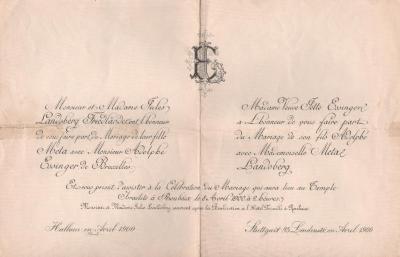 Monsieur et Madame Jules
Landsberg Friedländer ont l'honneur
de vous faire part du Mariage de leur fille
Meta avec Monsieur Adolphe
Essinger de Bruxelles.
Madame Veuve Jette Essinger
a l'honneur de vous faire part
du Mariage de son fils Adolphe
avec Mademoiselle Meta
Landsberg.
Et vous prient d'assister à la Célébration du Mariage qui aura lieu au Temple
Israélite à Roubaix le 8 Avril 1900 à 2 heures
Monsieur & Madame Jules Landsberg recevront après la Bénédiction à l'Hôtel Ferraille à Roubaix
Halluin en Avril 1900
Stuttgart Lindenstr. en Avril 1900